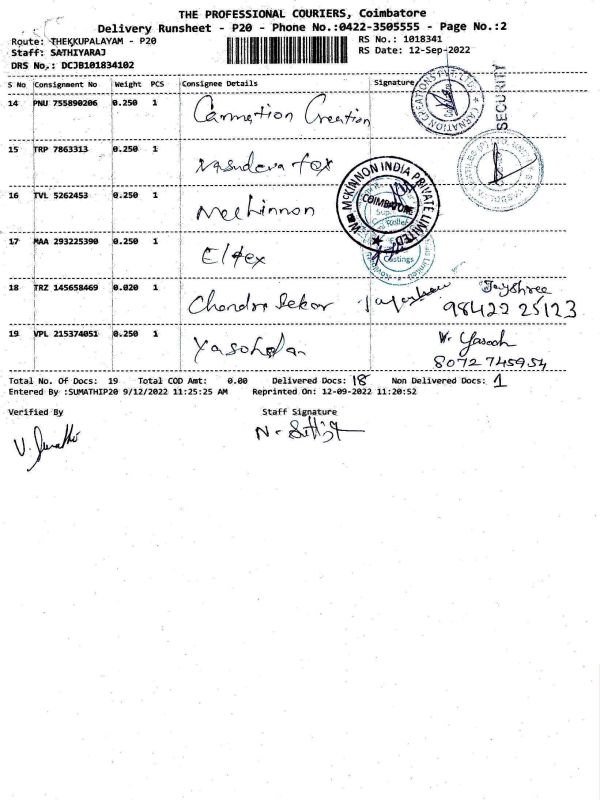 THE PROFESSIONAL COURIERS, Coimbatore
Delivery Runsheet - P20 - Phone No.:0422-3505555 - Page No.:2
Route: THEKKUPALAYAM - P20 RS No.: 1018341
Staff: SATHIYARAJ RS Date: 12-Sep-2022
DRS No.: DCJB101834102
S No Consignment No Weight PCS Consignee Details Signature
14 PNU 755890206 0.250 1 Carnation Creation
CARNATION CREATIONS PVT. LTD.
SECURITY
15 TRP 7863313 0.250 1 Vasudeva fox
16 TVL 5262453 0.250 1 Mechinnon
W.H. MCKINNON INDIA PRIVATE LIMITED
COIMBATORE
17 MAA 293225390 0.250 1 Elfex
Castings
18 TRZ 145658469 0.020 1 Chandra Sekar Jayashree Jayshree
98422 25123
19 VPL 215374051 0.250 1 Yasodan V. Yasodh
8072745954
Total No. Of Docs: 19 Total COD Amt: 0.00 Delivered Docs: 18 Non Delivered Docs: 1
Entered By :SUMATHIP20 9/12/2022 11:25:25 AM Reprinted On: 12-09-2022 11:20:52
Verified By Staff Signature
V. Sumathi